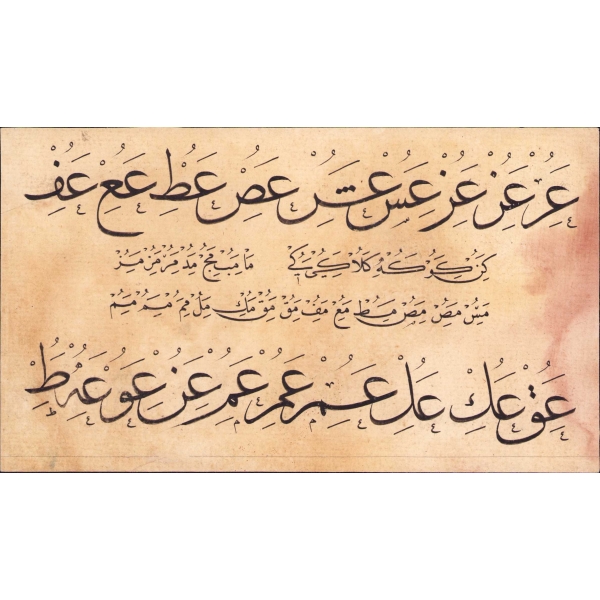 عر عز عز عس عش عص عط عع عف
كن كو كه كلا كى كى ما مب مج مد مر مز مز
مس مص مص مط مع مف مق مق مك مل مم مم مم
عق عك عل عم عم عم عن عو عه ط